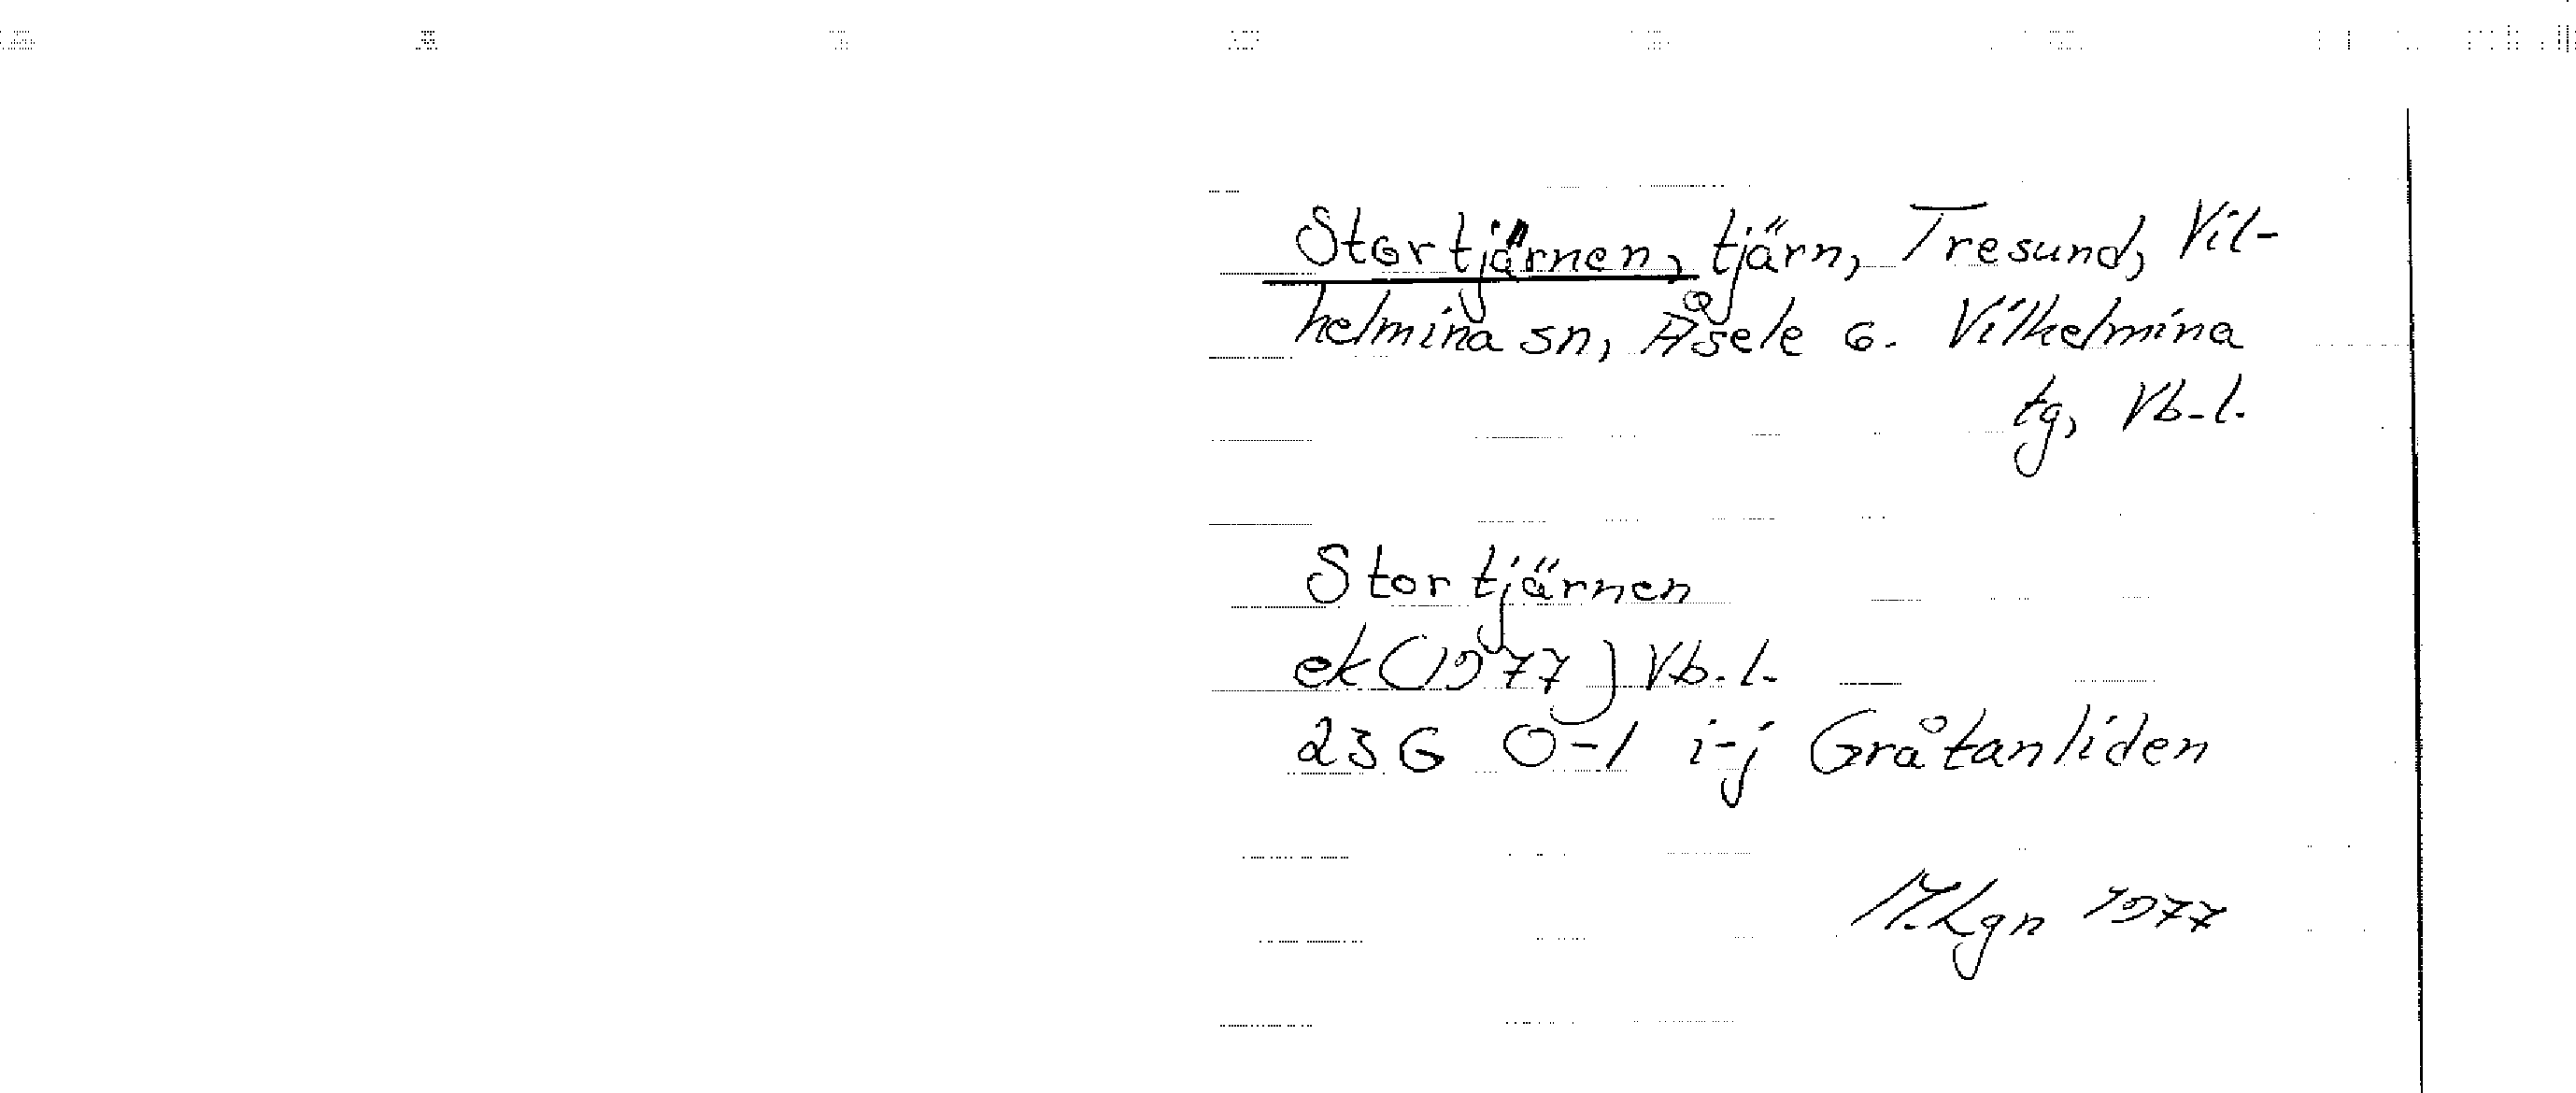 Stortjärnen, tjärn, Tresund, Vil-
helmina sn, Åsele 6. Vilhelmina
tg, Vb-l.
Stortjärnen
ek (1977) Vb.l.
23G 0-1 i-j Gråtanliden
M.Lgn 1977